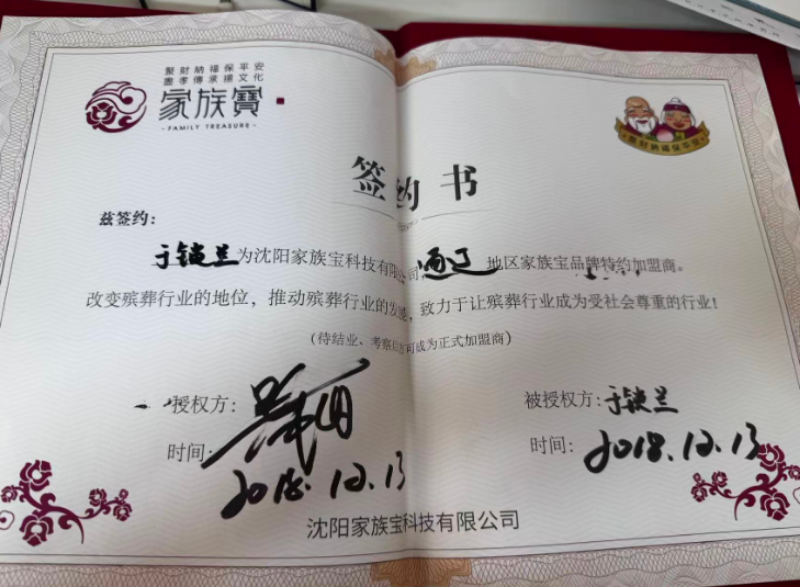 聚财納福保平安
善孝傳承揚文化
家族寶
- FAMILY TREASURE -
聚財納福保平安
签约书
兹签约:
于锁兰为沈阳家族宝科技有限公司,通辽 地区家族宝品牌特约加盟商。
改变殡葬行业的地位，推动殡葬行业的发展，致力于让殡葬行业成为受社会尊重的行业!
(待结业、考察后方可成为正式加盟商)
授权方:
被授权方:于锁兰
时间: 2018.12.13
时间: 2018.12.13
沈阳家族宝科技有限公司